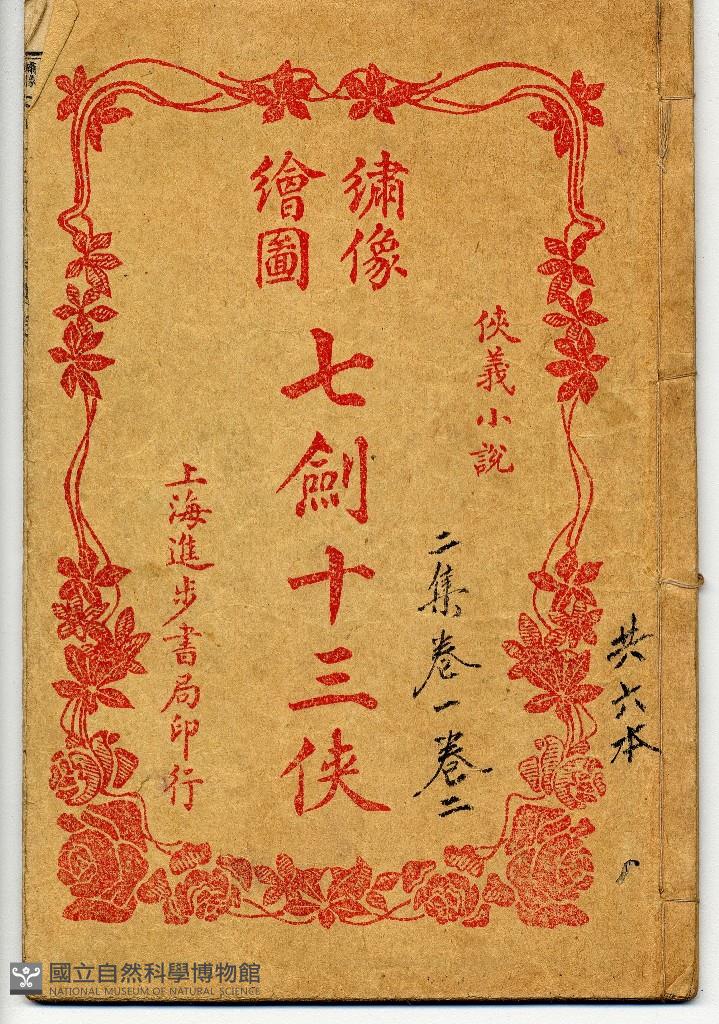 共六本
俠義小說
二集卷一卷二
繡像
繪圖
七劍十三俠
上海進步書局印行
繡像
國立自然科學博物館
NATIONAL MUSEUM OF NATURAL SCIENCE